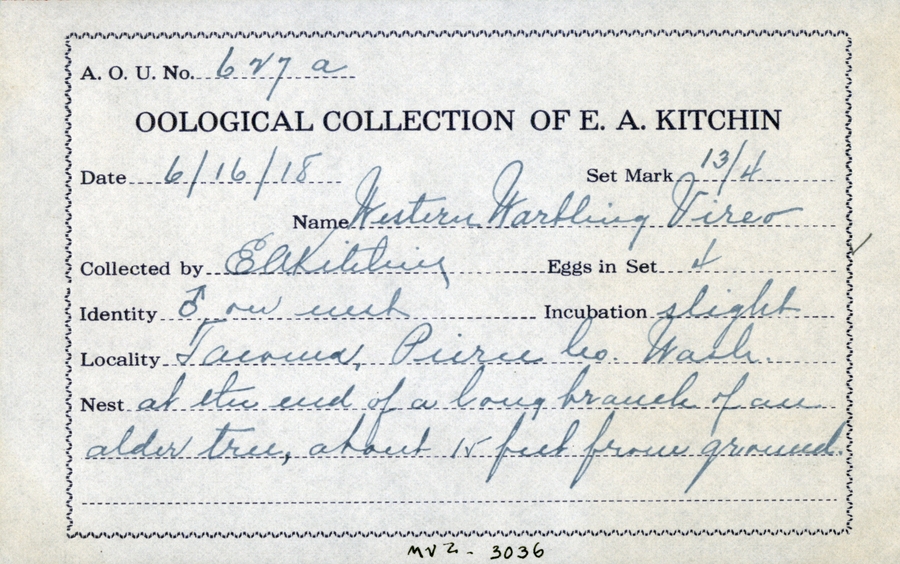 A. O. U. No. 627 a
OOLOGICAL COLLECTION OF E. A. KITCHIN
Date 6/16/18 Set Mark 13/4
Name Western Warbling Vireo
Collected by EAKitchin Eggs in Set 4
Identity ♂ on nest Incubation slight
Locality Tacoma, Pierce Co. Wash.
Nest at the end of a long branch of an
alder tree, about 15 feet from ground.
MVZ - 3036